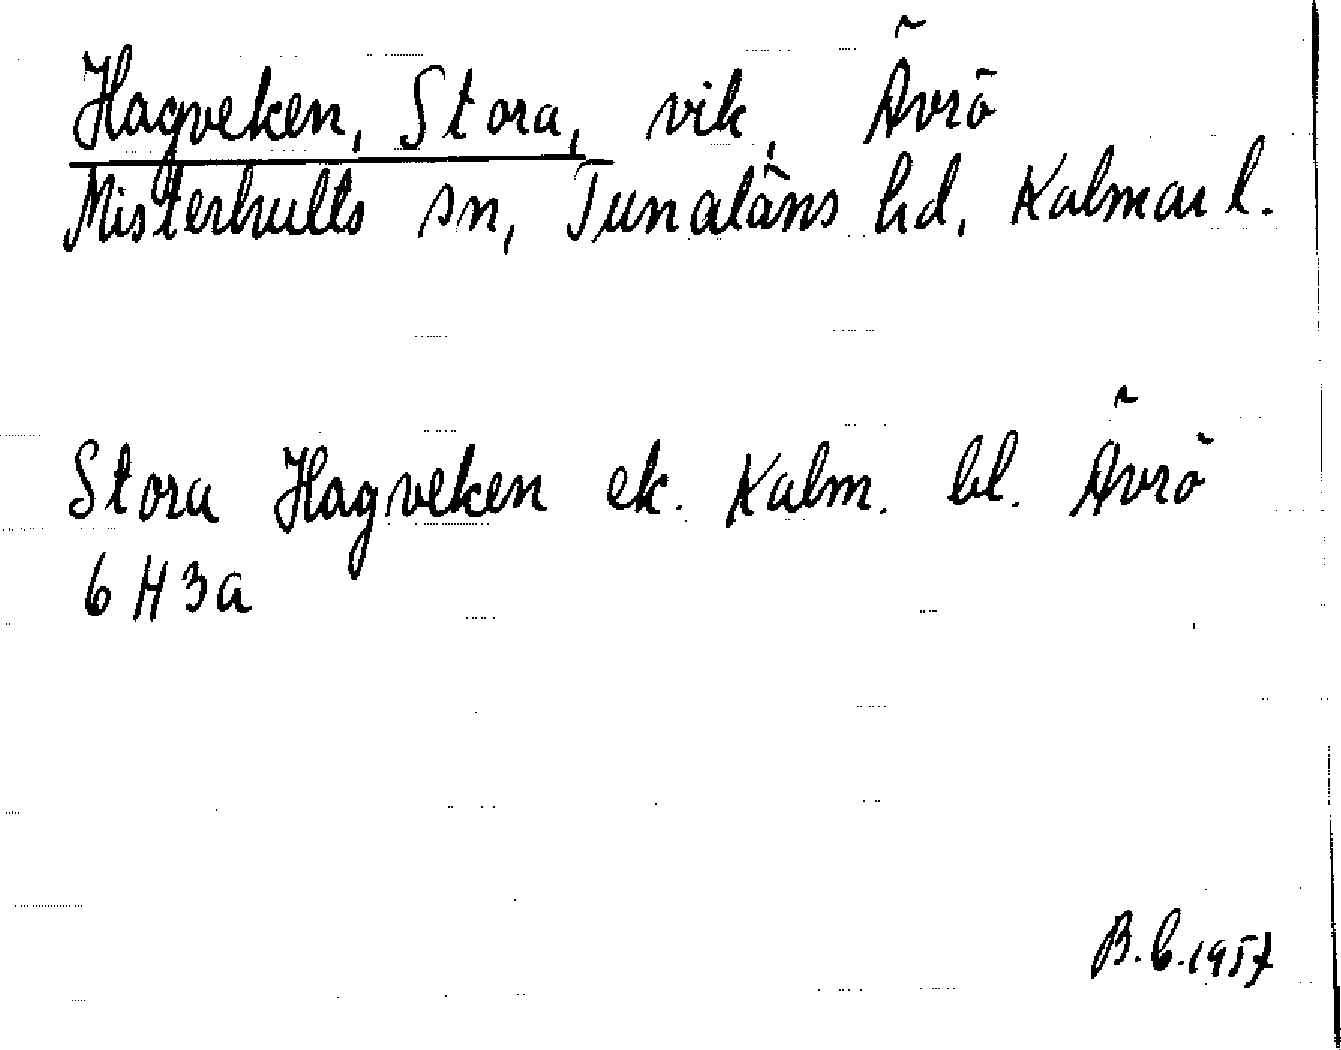 Hagveken, Stora, vik, Ävrö
Misterhults sn, Tunaläns hd, Kalmar l.
Stora Hagveken ek. Kalm. bl. Ävrö
6 H 3a
B.C. 1957